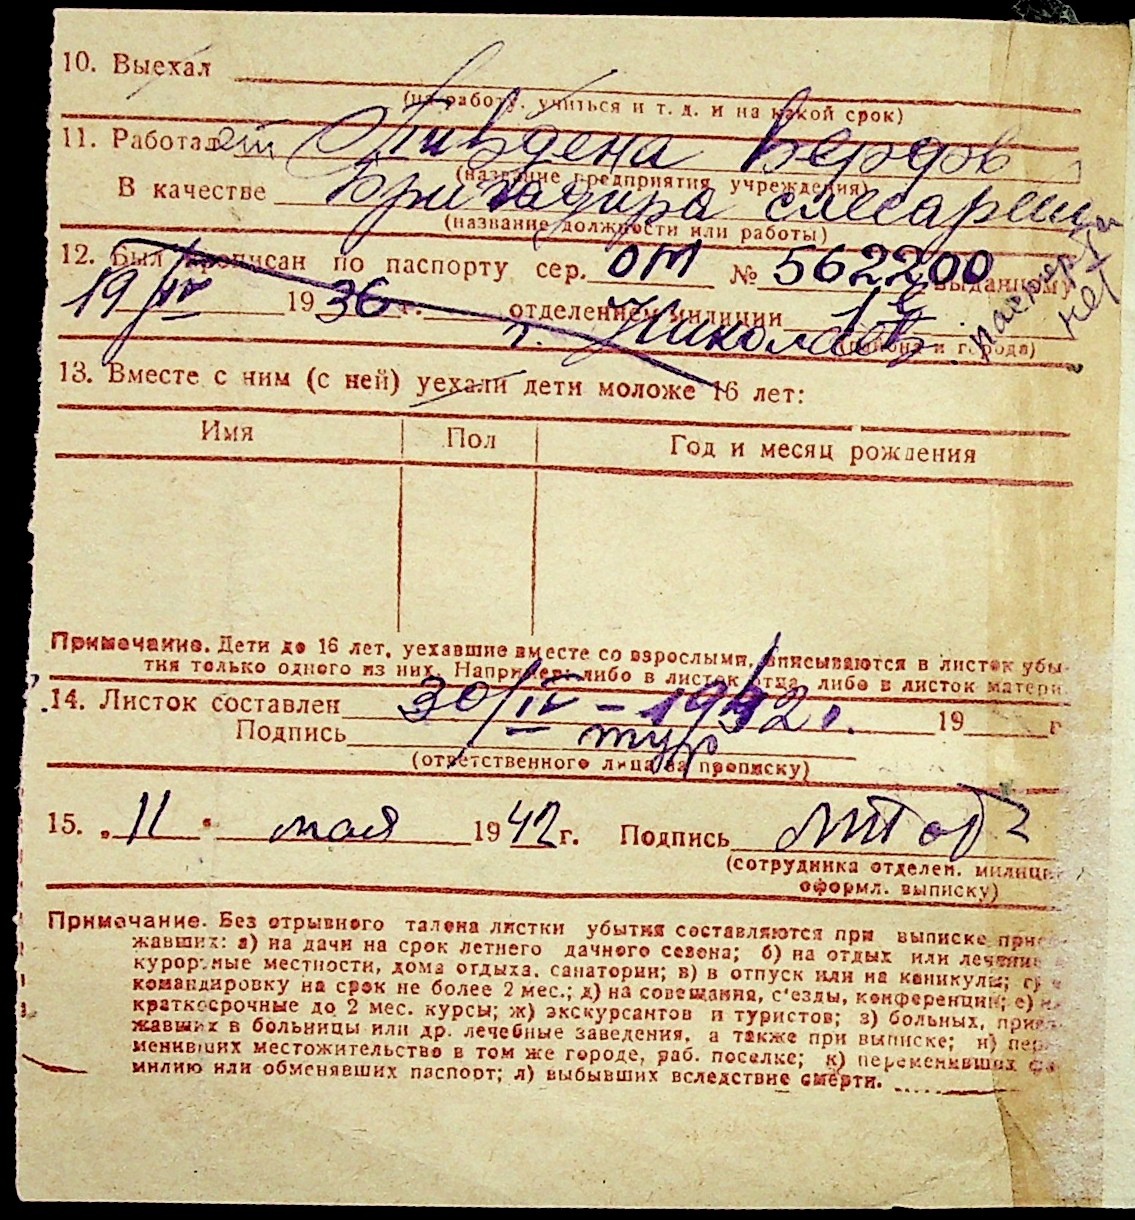 10. Выехал
(на работу, учиться и т. д. и на какой срок)
11. Работал
(название предприятия, учреждения)
В качестве Бригадира слесарей
(название должности или работы)
12. Был прописан по паспорту сер. ОМ № 562200 выданному
19/IV 1936 г. отделением милиции
г. Николаев
(района и города)
паспорта
нет
13. Вместе с ним (с ней) уехали дети моложе 16 лет:
Имя Пол Год и месяц рождения
Примечание. Дети до 16 лет, уехавшие вместе со взрослыми, вписываются в листок убы-
тия только одного из них. Например: либо в листок отца, либо в листок матери.
14. Листок составлен 30/IV – 1942 г. 19 г
Подпись
(ответственного лица за прописку)
15. „11" мая 1942 г. Подпись
(сотрудника отделен. милиции
оформл. выписку)
Примечание. Без отрывного талона листки убытия составляются при выписке приез-
жавших: а) на дачи на срок летнего дачного сезона; б) на отдых или лечение в
курортные местности, дома отдыха, санатории; в) в отпуск или на каникулы; г) в
командировку на срок не более 2 мес.; д) на совещания, с'езды, конференции; е) на
краткосрочные до 2 мес. курсы; ж) экскурсантов и туристов; з) больных, приез-
жавших в больницы или др. лечебные заведения, а также при выписке; и) пере-
менивших местожительство в том же городе, раб. поселке; к) переменивших фа-
милию или обменявших паспорт; л) выбывших вследствие смерти.